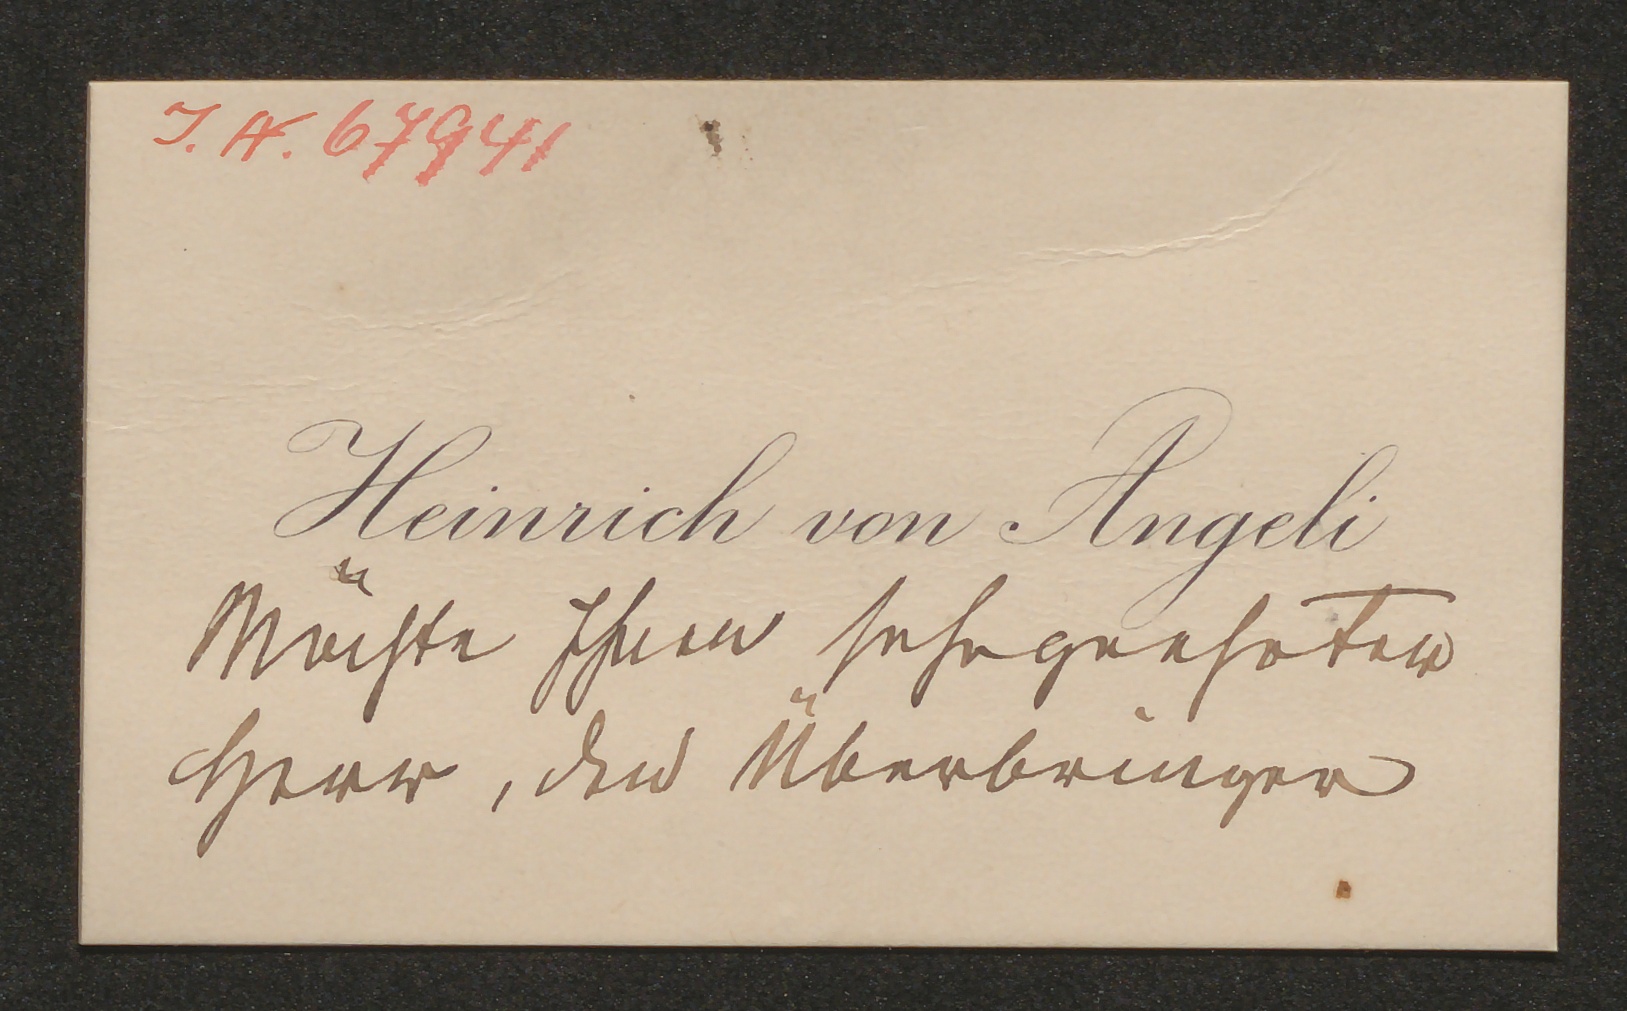 J. N. 67941
Heinrich von Angeli
Möchte Ihnen sehrgeehrter
Herr, den Überbringer